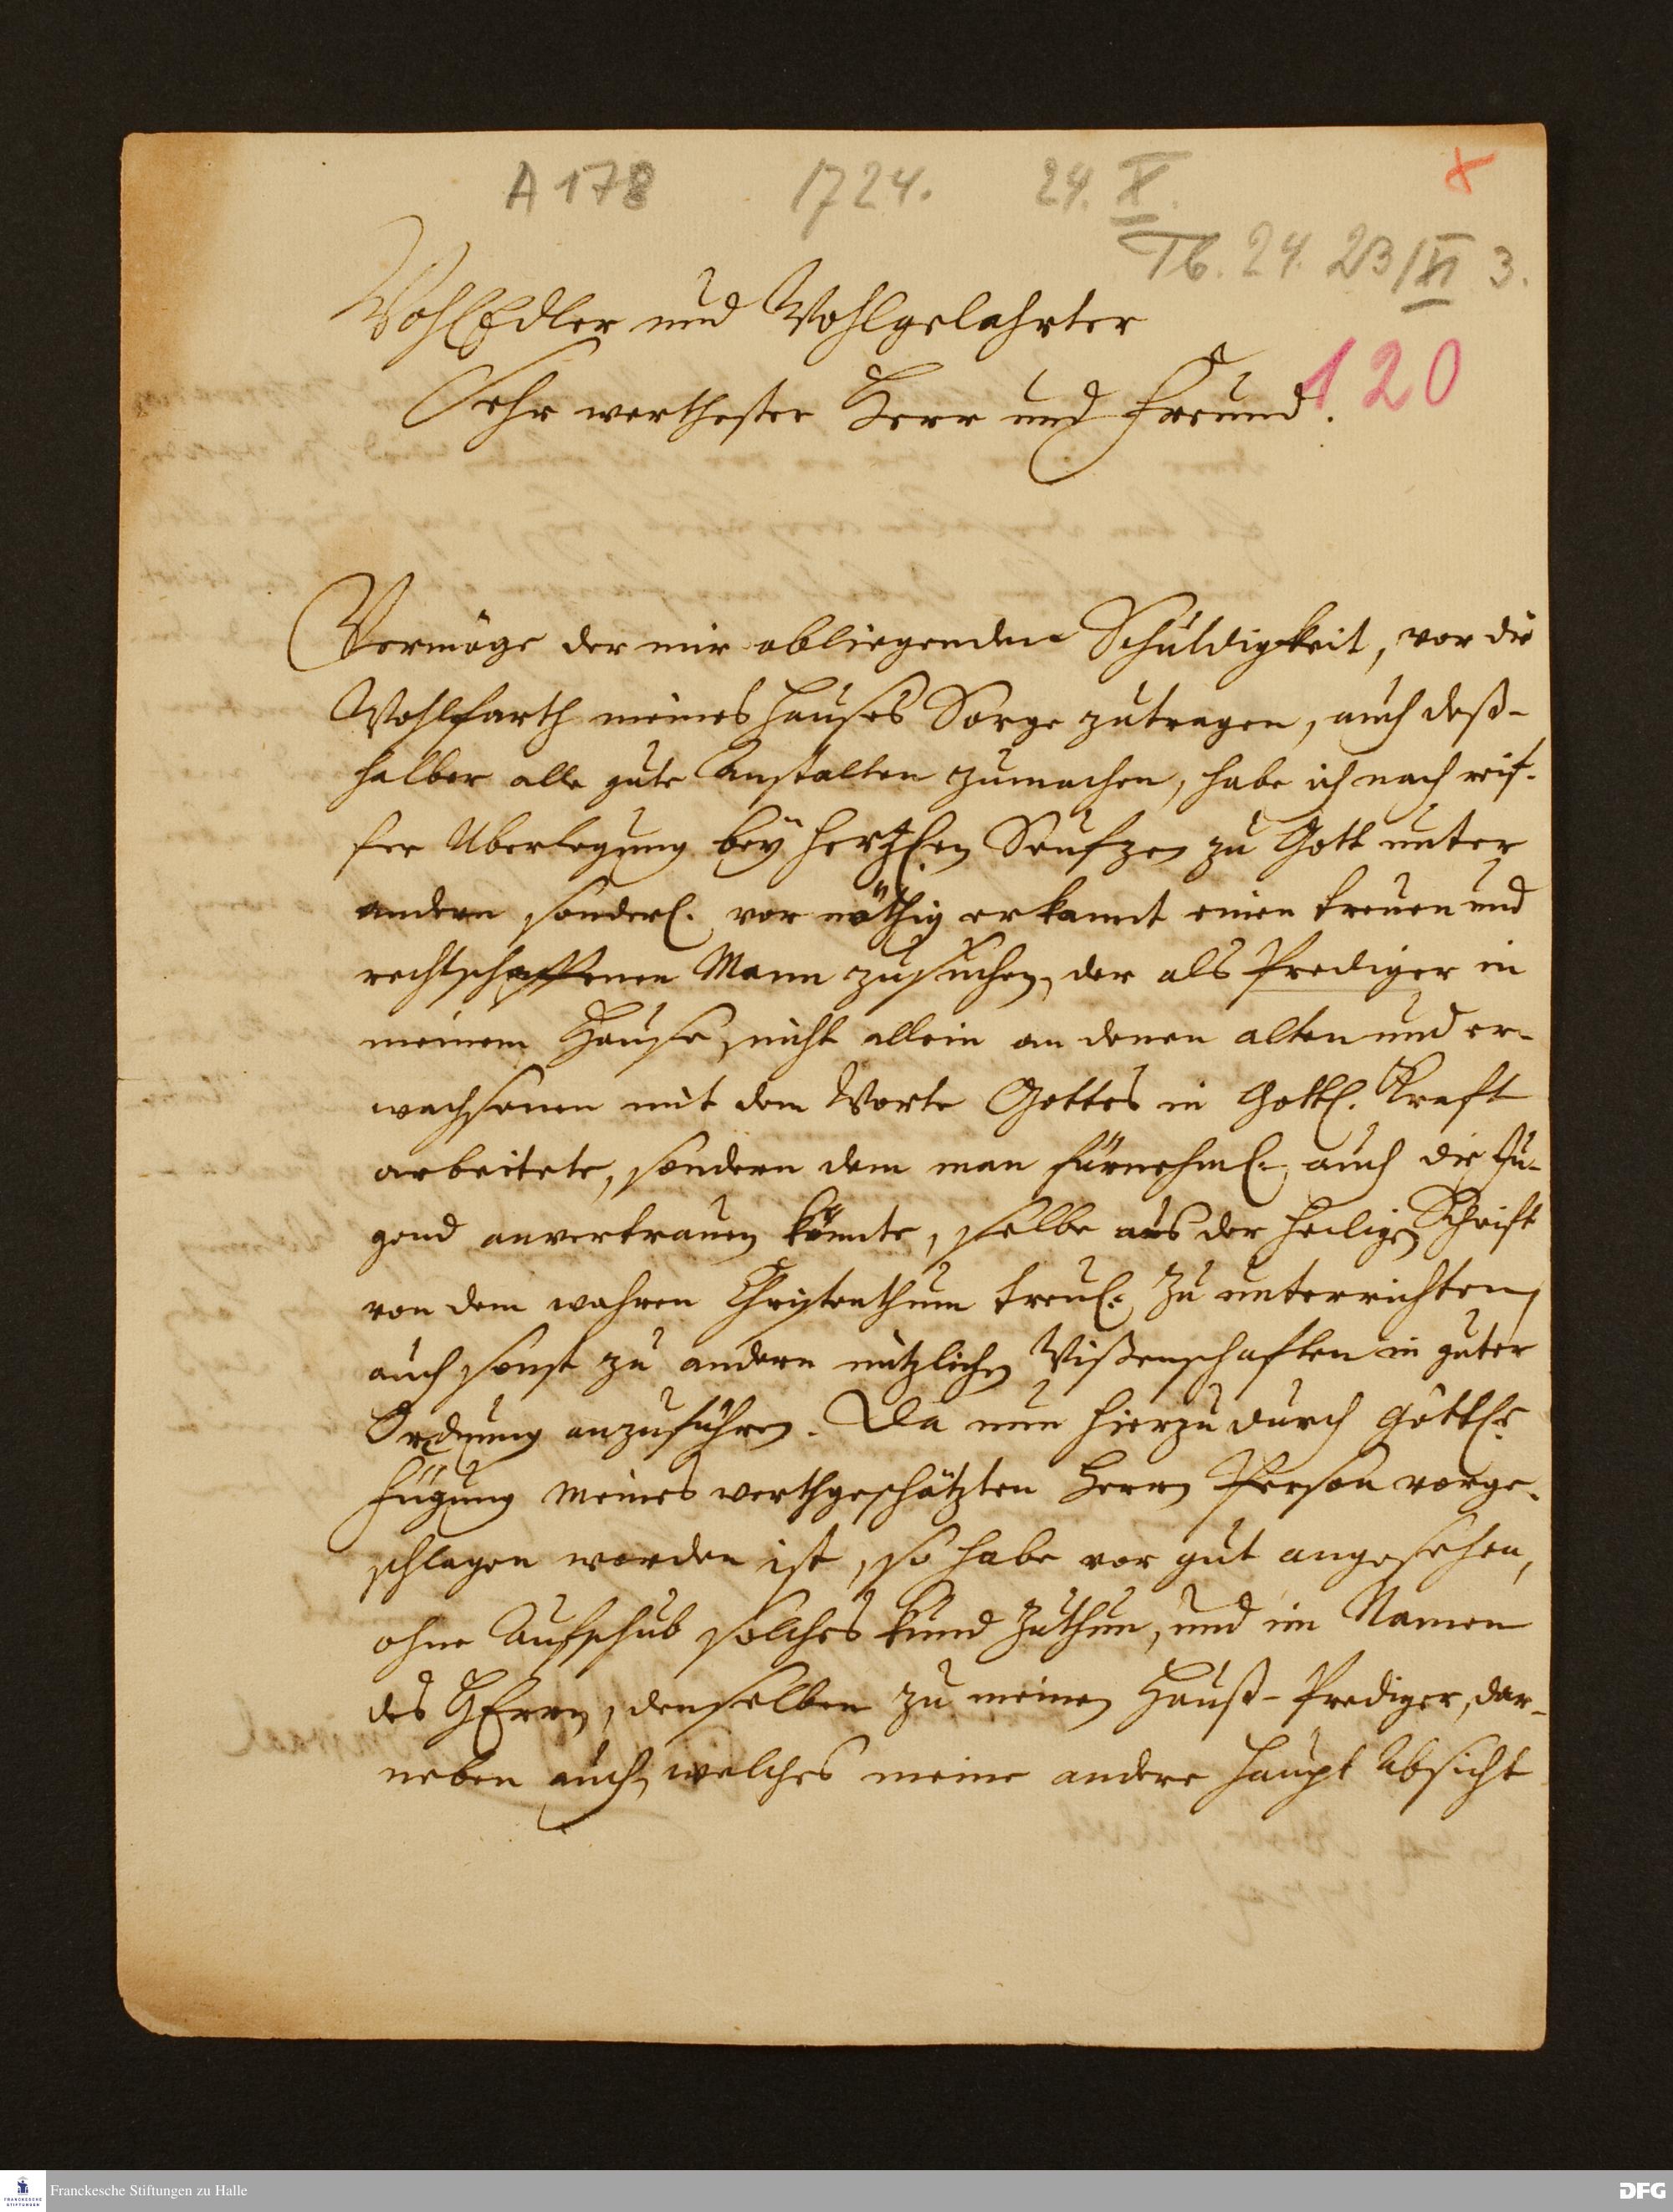 A 178 1724. 24. X.
Tb. 24. 23/XI 3.
WohlEdler und Wohlgelahrter
120
Sehr werthester Herr und Freund.
Vermöge der mir obliegenden Schuldigkeit, vor die
Wohlfarth meines Hauses Sorge zutragen, auch deß-
halber alle gute Anstalten zumachen, habe ich nach reif-
fer Uberlegung bey hertzlen Seufzen zu Gott unter
andern sonderl. vor nöthig erkannt einen treuen und
rechtschaffenen Mann zusuchen, der als Prediger in
meinem Hause, nicht allein an denen alten und er-
wachsenen mit dem Worte Gottes in Gottl. Krafft
arbeitete, sondern dem man fürnehml. auch die Ju-
gend anvertrauen könnte, selbe aus der heiligen Schrift
von dem wahren Christenthum treul. zu unterrichten,
auch sonst zu andern nützlichen Wißenschafften in guter
Ordnung anzuführen. Da nun hierzu durch göttle
Fügung meines werthgeschätzten Herrn Person vorge-
schlagen worden ist, so habe vor gut angesehen,
ohne Aufschub solches kund zuthun, und im Namen
des HErrn, denselben zu meinen Hauß-Prediger, dar-
neben auch, welches meine andere Haupt Absicht
Franckesche Stiftungen zu Halle
FRANCKESCHE
STIFTUNGEN
DFG